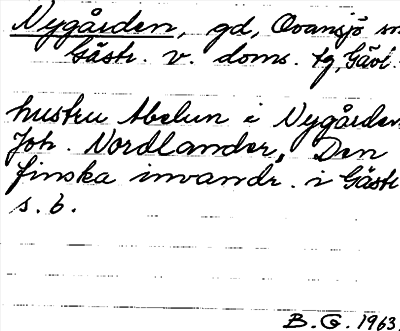 Nygården, gd, Ovansjö sn
Gästr. v. doms. tg, Gävl.
hustru Abelun i Nygården
Joh. Nordlander, Den
finska invandr. i Gästr
s. 6.
B. G. 1963.